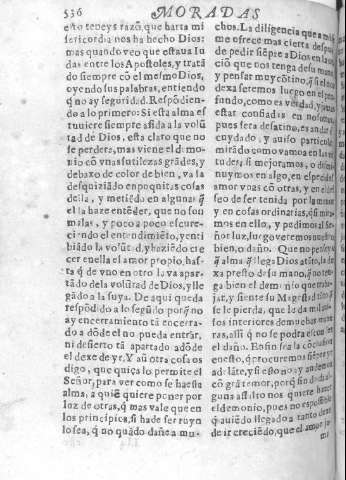 536 MORADAS
esto teneys razõ, que harta mi
sericordia nos ha hecho Dios:
mas quando veo que estaua Iu
das entre los Apostoles, y tratã
do siempre cõ el mesmo Dios,
oyendo sus palabras, entiendo
q̃ no ay seguridad. Respõdien-
do a lo primero: Si esta alma es
tuuiere siempre asida a la volũ
tad de Dios, està claro que no
se perdera, mas viene el demo-
nio cõ vnas sutilezas grãdes, y
debaxo de color de bien, va la
desquiziãdo en poquitas cosas
della, y metiẽdo en algunas q̃
el la haze entẽder, que no son
malas, y poco a poco escure-
ciendo el entendimiẽto, y enti
biãdo la volũtad, y haziẽdo cre
cer en ella el amor propio, has-
ta q̃ de vno en otro la va apar-
tãdo de la volũtad de Dios, y lle
gãdo a la suya. De aqui queda
respõdido a lo segũdo porq̃ no
ay encerramiento tã encerra-
do a dõde el no pueda entrar,
ni desierto tã apartado adõde
el dexe de yr. Y aũ otra cosa os
digo, que quiça lo permite el
Señor, para ver como se ha esta
alma, a quiẽ quiere poner por
luz de otras, q̃ mas vale que en
los principios, si ha de ser ruyn
lo sea, q̃ no quãdo dañe a mu-
chos. La diligencia que a mi se
me ofrece mas cierta despues
de pedir siẽpre a Dios en la ora
ciõ que nos tenga de su mano,
y pensar muy cõtino, q̃ si el nos
dexa seremos luego en el pro
fundo, como es verdad, y jamas
estar confiadas en nosotras,
pues sera desatino, es andar cõ
cuydado, y auiso particular
mirãdo como vamos en las vir
tudes, si mejoramos, o dismi
nuymos en algo, en especial en el
amor vnas cõ otras, y en el des
seo de ser tenida por la menor,
y en cosas ordinarias, q̃ si mira
mos en ello, y pedimos al Se-
ñor luz, luego veremos nuestro
bien, o daño. Que no penseys
q̃ alma q̃ llega Dios a tãto, la de
xa presto de su mano, q̃ no ten-
ga bien el demonio que traba
jar, y siente su Magestad tãto q̃
se le pierda, que le da mil auisos
interiores de muchas mane
ras, assi q̃ no se podra esconder
el daño. En fin sea la cõclusiõ
en esto, q̃ procuremos siẽpre yr
adelãte, y si esto no ay andemos
cõ grã temor, porq̃ sin duda al-
gun assalto nos quiere hazer
el demonio, pues no es possible
q̃ auiẽdo llegado a tanto dexe
de ir creciẽdo, que el amor ja-